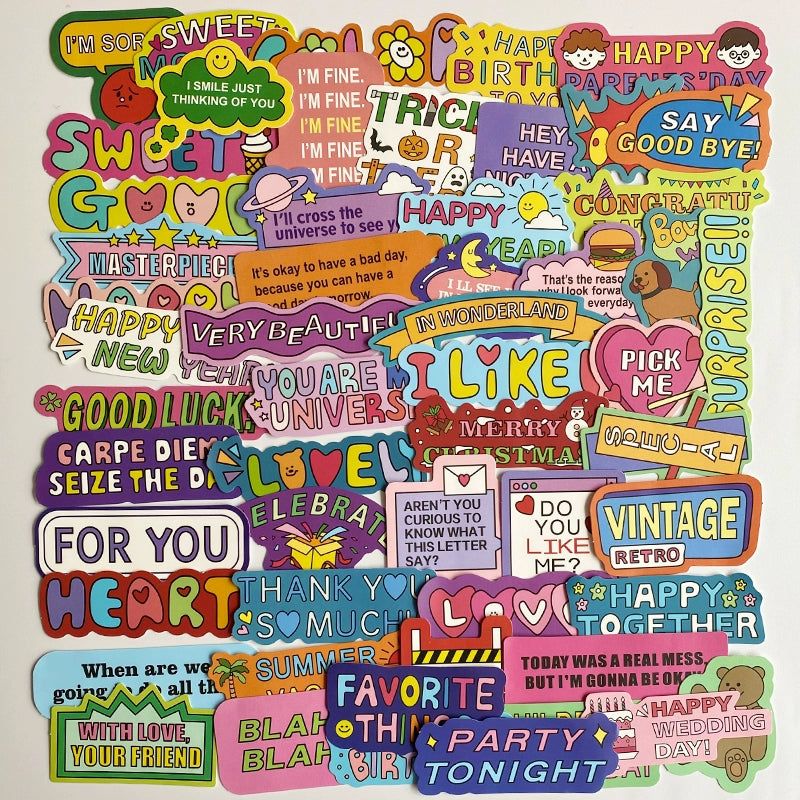 I'M SOR
SWEET
I SMILE JUST
THINKING OF YOU
I'M FINE.
I'M FINE.
I'M FINE.
I'M FINE.
I'M FINE.
HAPP
BIRTH
TO YO
HAPPY
PARENTS'DAY
SWEET
TRICK
OR
HEY,
HAVE A
SAY
GOOD BYE!
GOO
I'll cross the
universe to see y
HAPPY
NEW YEAR!
CONGRATU
MASTERPIEC
It's okay to have a bad day,
because you can have a
good day tomorrow.
I LL SEE
That's the reaso
why I look forwa
everyday
SURPRISE!!
HAPPY
NEW YEAR
VERY BEAUTIFU
IN WONDERLAND
I LIKE
PICK
ME
YOU ARE M
UNIVERS
GOOD LUCK.
MERRY
CHRISTMAS
SPECIAL
CARPE DIEM
SEIZE THE DA
LOVELY
FOR YOU
CELEBRATE
AREN'T YOU
CURIOUS TO
KNOW WHAT
THIS LETTER
SAY?
DO
YOU
LIKE
ME?
VINTAGE
RETRO
HEART
THANK YOU
SO MUCH!
LOVE
HAPPY
TOGETHER
When are we
going to do all th
SUMMER
TODAY WAS A REAL MESS,
BUT I'M GONNA BE OKAY
WITH LOVE,
YOUR FRIEND
BLAH
BLAH
FAVORITE
THING
BIRT
PARTY
TONIGHT
HAPPY
WEDDING
DAY!